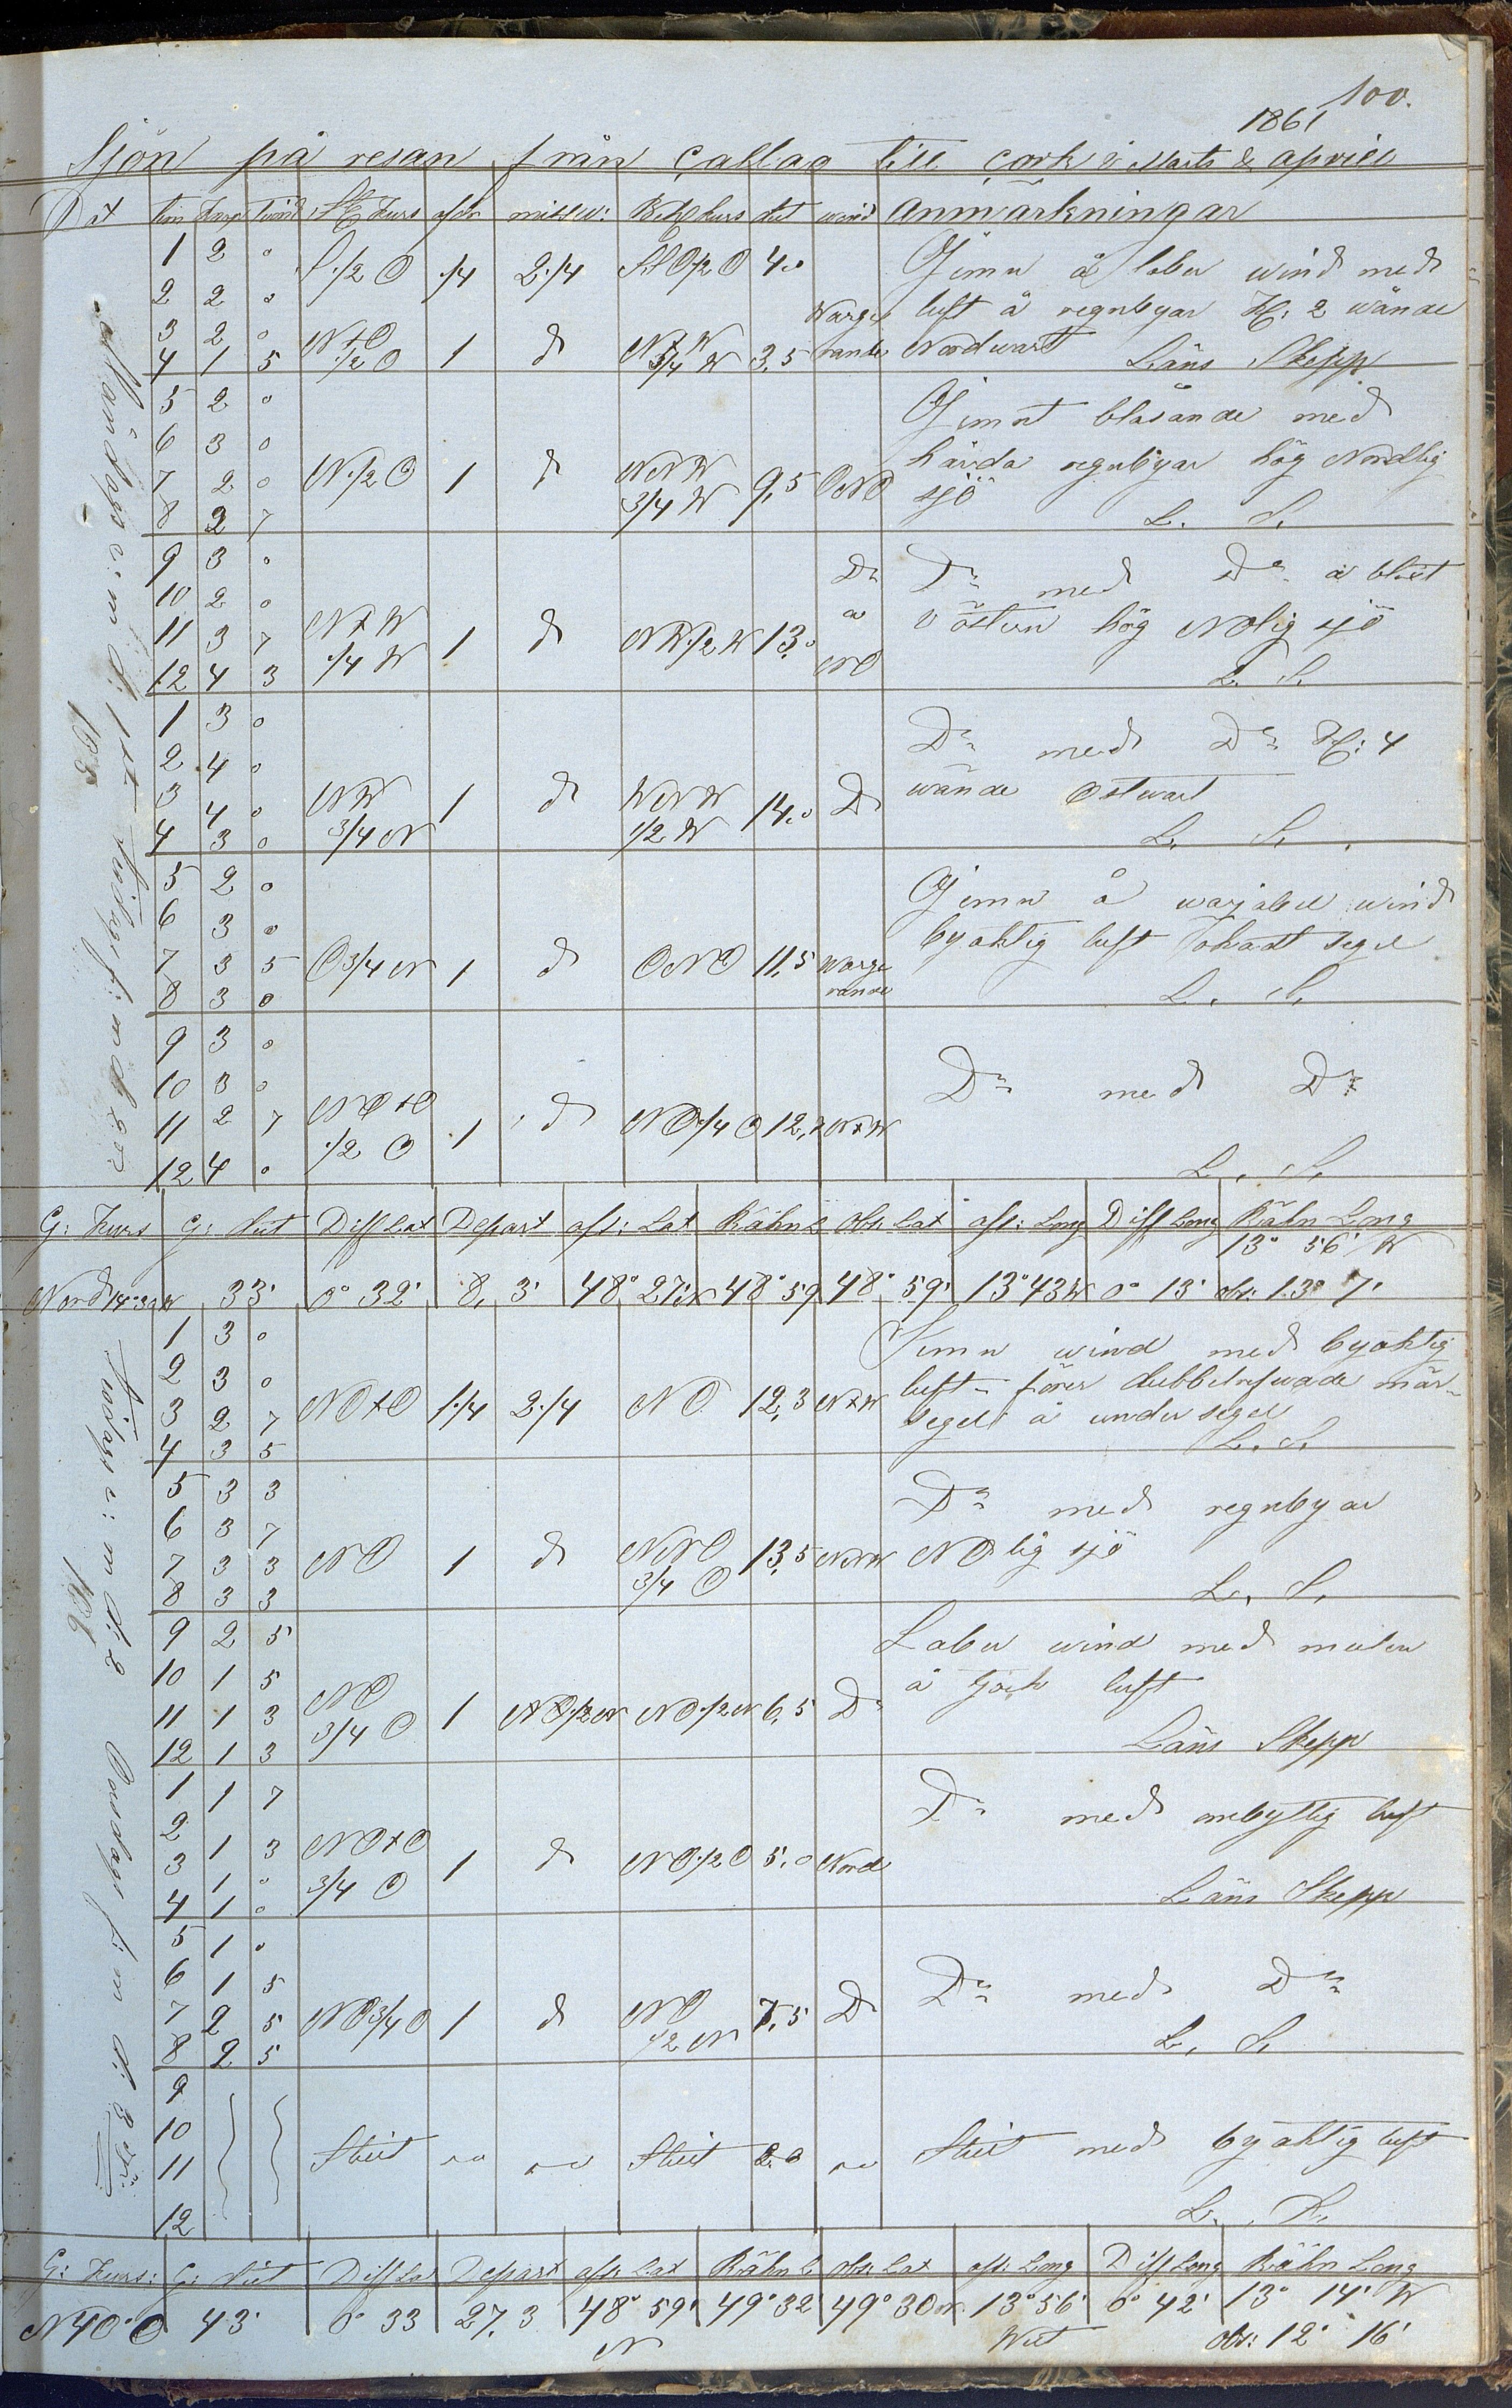 100.
1861
Sjön på resan från Callao till Cork i Marts & April
Dat tim Knop St. Kurs afdr missv: Beh. Kurs dist wind anmärkningar
1 2 0 S 1/2 O 1/4 2 1/4 4.0 Jemn å laber wind med
2 2 0 luft å regnbyar Kl: 2 wände
3 2 0 N+O 1 d N+W 3,5 Nordwart
4 1 5 1/2 O 3/4 W Läns Skepp
5 2 0 Jemnt blåsande med
6 3 0 hårda regnbyar hög Nordlig
7 2 0 N 1/2 O 1 d NNW 9,5 ONO sjö
8 2 7 3/4 W L. S.
9 3 0 Do Do med Do å blixt
10 2 0 å i östern hög NOlig sjö
11 3 7 N+W 1 d NW 1/2 W 13,0 NO
12 4 3 1/4 W L. S.
1 3 0 Do med Do Kl: 4
2 4 0 wände Ostwart
3 4 0 NW 1 d WNW 14.0 Do
4 3 0 3/4 N 1/2 W L. S.
5 2 0 Jemn å warjabel wind
6 3 0 byaktig luft segel
7 3 5 O 3/4 N 1 d ONO 11,5 Warge
8 3 0 rande L. S.
9 3 0
10 3 0 Do med Do
11 2 7 NO+O 1 d NO 1/4 O 12,7 N+W
12 4 0 1/2 O L. S.
Måndag e: m d: 1st Tisdag f: m d: 2
185
G: Kurs G: dist Diff Lat Depart aft: Lat Räkn L Obs: Lat aft: Long Diff Long Räkn Long
13° 56' W
Nord 14°30 W 33' 0° 32' 8,3' 48° 27' N 48° 59 48° 59' 13° 43 W 0° 13' obs: 13° 7'
1 3 0 Jemn wind med byaktig
2 3 0 luft förer dubbelrefvade mär-
3 2 7 NO+O 1 1/4 2 1/4 NO 12,3 N+W segel å under segel
4 3 5 L. S.
5 3 3 Do med regnbyar
6 3 7
7 3 3 NO 1 d NNO 13,5 NNW NOlig sjö
8 3 3 3/4 O L. S.
9 2 5 Laber wind med mulen
10 1 5 å tjock luft
11 1 3 NO 1 NO 1/2 N NO 1/2 N 6,5 Do
12 1 3 3/4 O Läns Skepp
1 1 7 Do med ombytlig luft
2 1 3 NO+O
3 1 0 3/4 O 1 d NO 1/2 O 5,0 Nord
4 1 0 Läns Skepp
5 1 0
6 1 5 Do med Do
7 2 5 NO 3/4 O 1 d NO 7,5 Do
8 2 5 1/2 N L. S.
9
10
11 Stilt Stilt 2.0 Stilt med byaktig luft
12 L. S.
Tisdag e: m d: 2 Onsdag f: m d: 3
186
G: Kurs: G: dist Diff Lat Depart aft: Lat Räkn L Obs: Lat aft: Long Diff Long Räkn Long
N 40° O 43' 0° 33 27,3 48° 59' 49° 32' 49° 30 N 13° 56' 0° 42' 13° 14' W
N West obs: 12° 16'